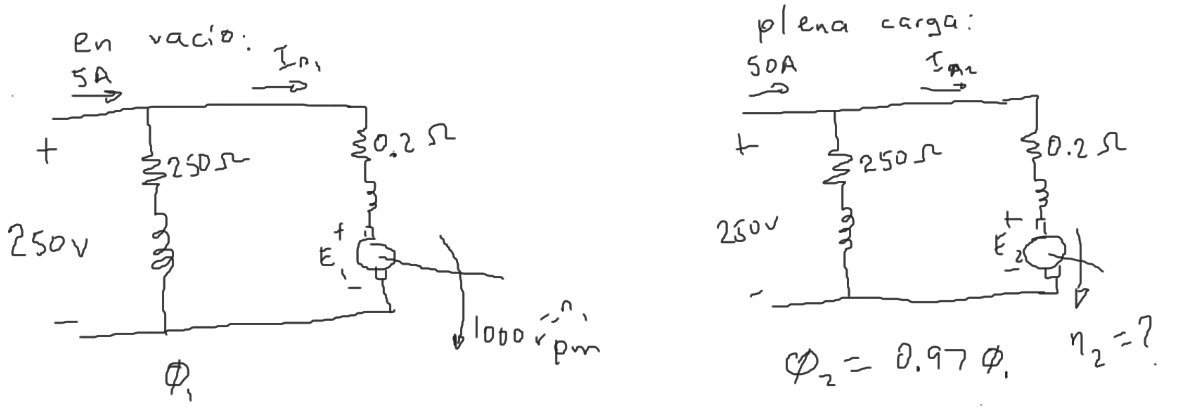 en vacío:
5A
I_A1
+
250Ω
0.2 Ω
250v
+
E_1
-
-
1000 rpm
n_1
Φ_1
plena carga:
50A
I_A2
+
250Ω
0.2 Ω
250v
+
E_2
-
-
Φ_2 = 0.97 Φ_1
n_2 = ?